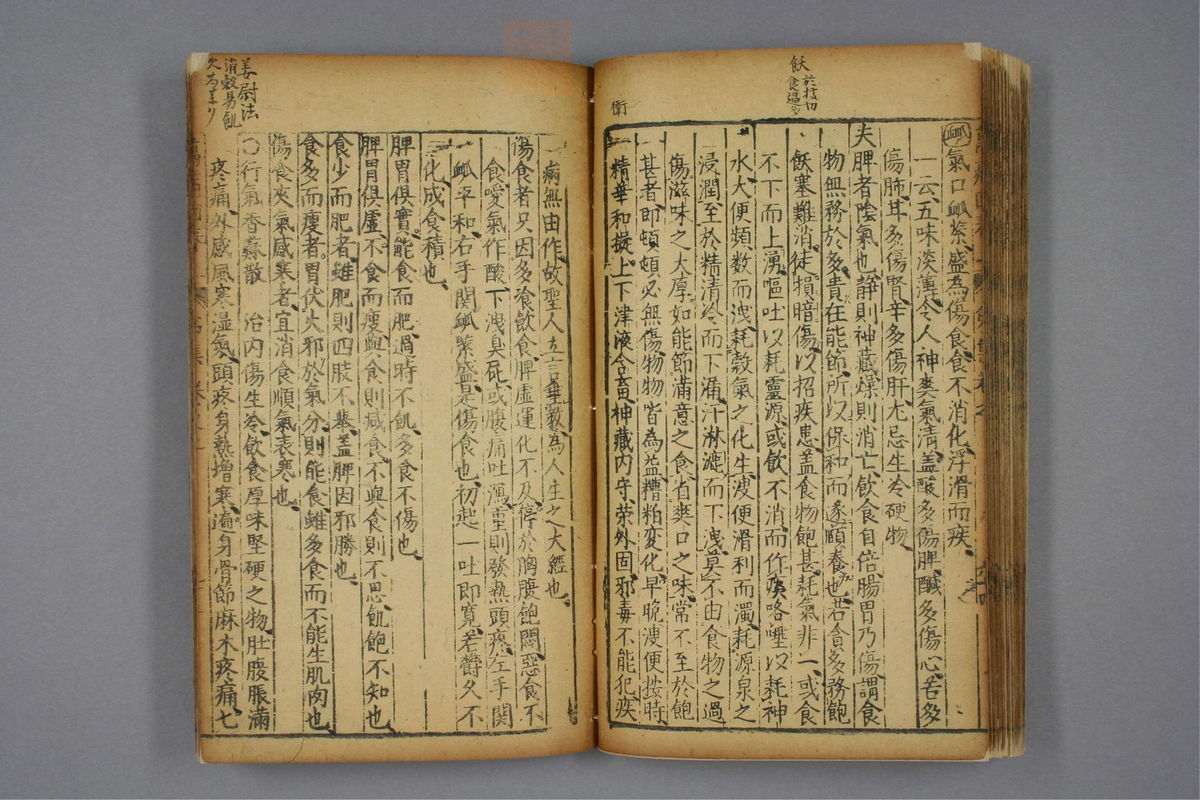 飫 於據切
食過多
衛
脈 氣口脈紧盛為傷食食不消化浮滑而疾
一云五味淡薄令人神爽氣清盖酸多傷脾醎多傷心苦多
傷肺甘多傷腎辛多傷肝尤忌生冷硬物
夫脾者陰氣也静則神藏燥則消亡飲食自倍腸胃乃傷謂食
物無務於多貴在能節所以保和而遂頤養也若貪多務飽
飫塞難消徒損暗傷以招疾患盖食物飽甚耗氣非一或食
不下而上湧嘔吐以耗靈源或飲不消而作痰咯唾以耗神
水大便頻数而洩耗穀氣之化生溲便滑利而濁耗源泉之
浸潤至於精清冷而下漏汗淋漉而下洩莫不由食物之過
傷滋味之大厚如能節滿意之食省爽口之味常不至於飽
甚者即頓頓必無傷物物皆為益糟粕変化早晩溲便按時
精華和凝上下津液含蓄神藏内守荣外固邪毒不能犯疾
病無由作故聖人立言垂教為人生之大經也
傷食者只因多飡飲食脾虚運化不及停於胸腹飽悶惡食不
食噯氣作酸下洩臭砒或腹痛吐瀉重則發熱頭疼左手関
脈平和右手関脈紧盛是傷食也初起一吐即寬若欝久不
化成食積也
脾胃俱實能食而肥過時不飢多食不傷也
脾胃俱虚不食而瘦與食則减食不與食則不思飢飽不知也
食少而肥者雖肥則四肢不挙盖脾因邪勝也
食多而瘦者胃伏火邪於氣分則能食雖多食而不能生肌肉也
傷食夾氣感寒者宜消食順氣表寒也
〇行氣香蘓散 治内傷生冷飲食厚味堅硬之物肚腹脹滿
疼痛外感風寒湿氣頭疼身熱増寒遍身骨節麻木疼痛七
姜尉法
消穀易飢